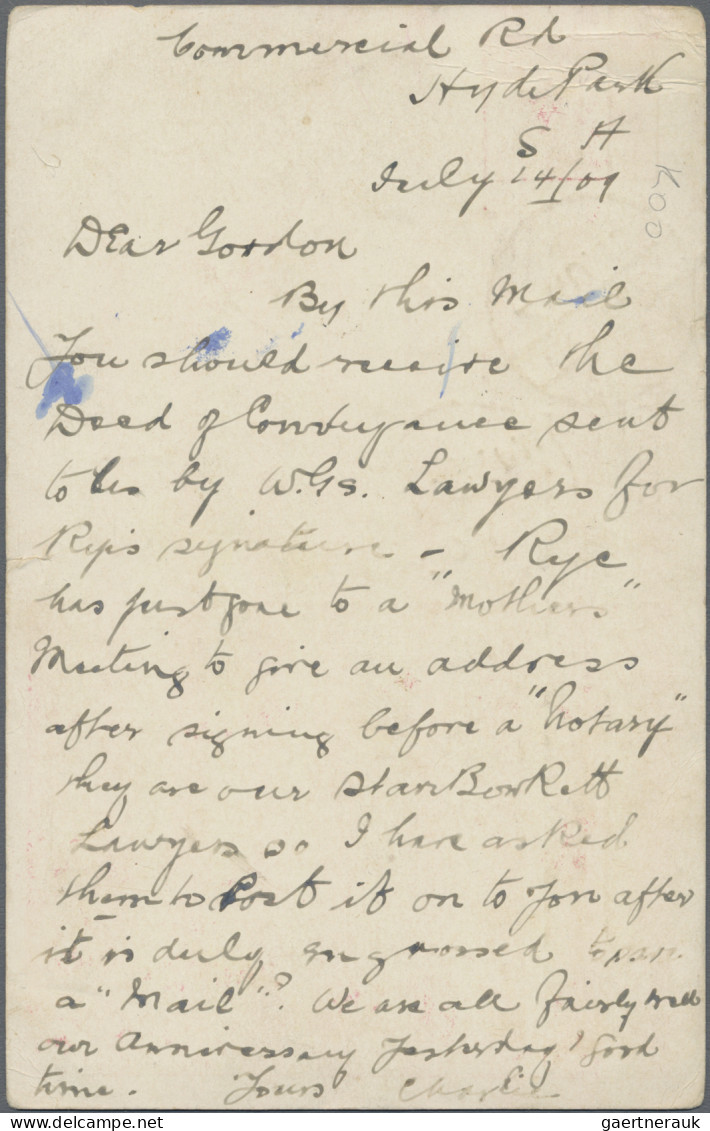 Commercial Rd
Hyde Park
S A
July 14/09
Dear Gordon
By this Mail
You should receive the
Deed of Conveyance sent
to us by W.Gs. Lawyers for
signature - Rye
has just gone to a "Mothers"
Meeting to give an address
after signing before a "Notary"
they are our StarrBowkett
Lawyers so I have asked
them to Post it on to You after
it is duly engrossed to
a "Mail"? We are all fairly well
our Anniversary Yesterday! good
time. Yours Charlie
K00
gaertnerauk
DELCAMPE.COM